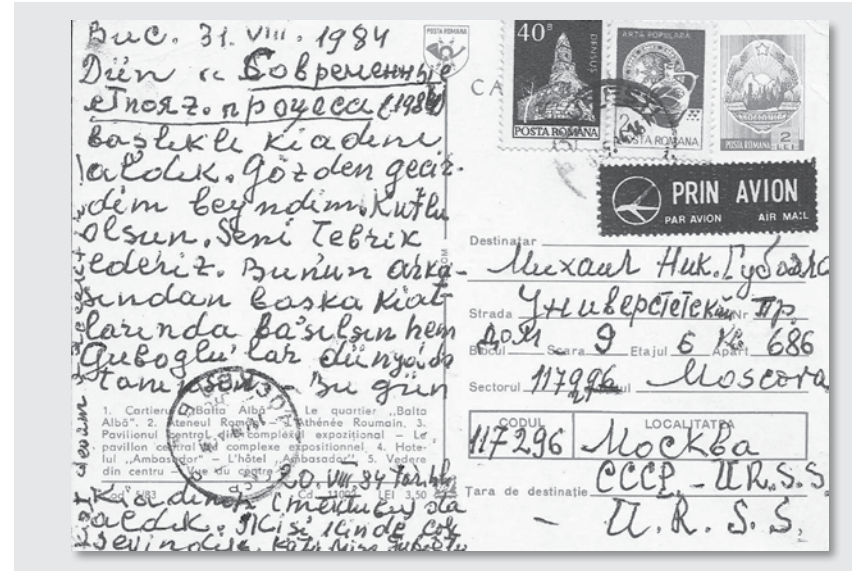 Buc. 31. VIII. 1984
Dün „Современные
етнояз. процеса (1984)
başlıklı kiadını
aldık. Gözden geçir-
dim beyndim. Kutlu
olsun. Seni Tebrik
ederiz. Bunun arka-
sından başka kiat-
larında basılsın hem
Guboglu'lar dünyada
tanınsın. - Bu gün
1. Cartierul „Balta Albă". Le quartier „Balta
Albă". 2. Ateneul Român - L'Athénée Roumain. 3.
Pavilionul central din complexul expoziţional - Le
pavillon central du complexe expositionnel. 4. Hote-
lul „Ambasador" - L'hôtel „Ambasador". 5. Vedere
din centru - Vue du centre
Cod 5/83 Cd. 11002 LEI 3,50
20. VIII. 84 tarihli
aldık. İkisi içinde çok
sevindik.
POSTA ROMANA
CA
40B
DENSUŞ
POSTA ROMANA
ARTA POPULARĂ
2
POSTA ROMANA
POSTA ROMANA 2 LEI
PRIN AVION
PAR AVION AIR MAIL
Destinatar Михаил Ник. Губогло
Strada Университетский Nr. пр.
Blocul дом Scara 9 Etajul 6 Apart. Кв 686
Sectorul 117296 Moscova
CODUL LOCALITATEA
117296 Москва
Tara de destinaţie CCCP - U.R.S.S.
- U.R.S.S.